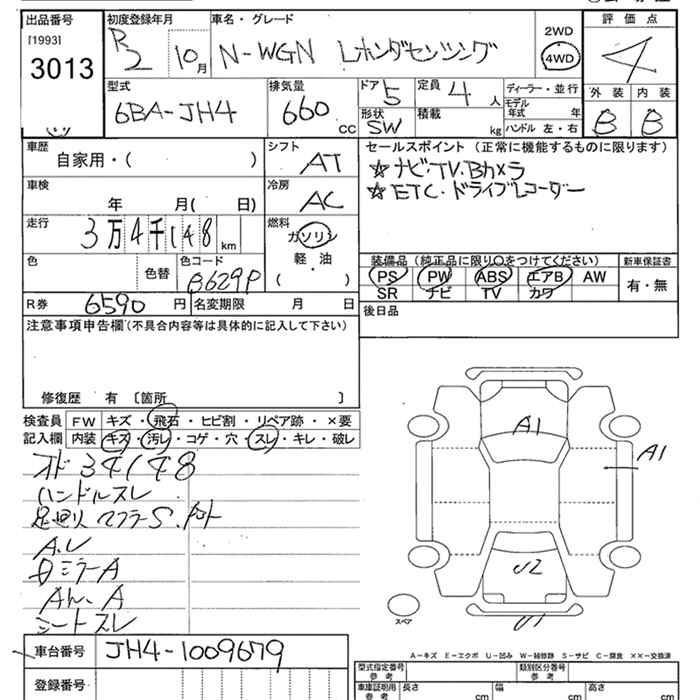 出品番号 初度登録年月 車名・グレード 2WD 評価点
[1993] R2 10月 N-WGN Lホンダセンシング 4WD 4
3013
型式 排気量 ドア 5 定員 4人 ディーラー・並行 外装 内装
6BA-JH4 660 cc 形状 SW 積載 kg モデル年式 年 B B
ハンドル 左・右
車歴 シフト セールスポイント (正常に機能するものに限ります)
自家用・( ) AT ☆ナビ・TV・Bカメラ
車検 冷房 ☆ETC・ドライブレコーダー
年 月( 日) AC
走行 燃料
3万4千148 km ガソリン
軽・油
( ・ )
色 色替 色コード B629P
装備品 (純正品に限り○をつけてください) 新車保証書
PS PW ABS エアB AW 有・無
SR ナビ TV カワ
R券 6590円 名変期限 月 日
後日品
注意事項申告欄(不具合内容等は具体的に記入して下さい)
修復歴 有 〔箇所 〕
検査員 FW キズ・飛石・ヒビ割・リペア跡・×要
記入欄 内装 キズ・汚レ・コゲ・穴・スレ・キレ・破レ
オド34148
ハンドルスレ
足回り マフラーS.
A.レ
ミラーA
A
シートスレ
A1
A1
U2
U1
スペア
A-キズ E-エクボ U-凹み W-補修跡 S-サビ C-腐食 XX-交換済
車台番号 JH4-1009679
登録番号
型式指定番号 参考 類別区分番号 参考
車庫証明用 参考 長さ cm 幅 cm 高さ cm